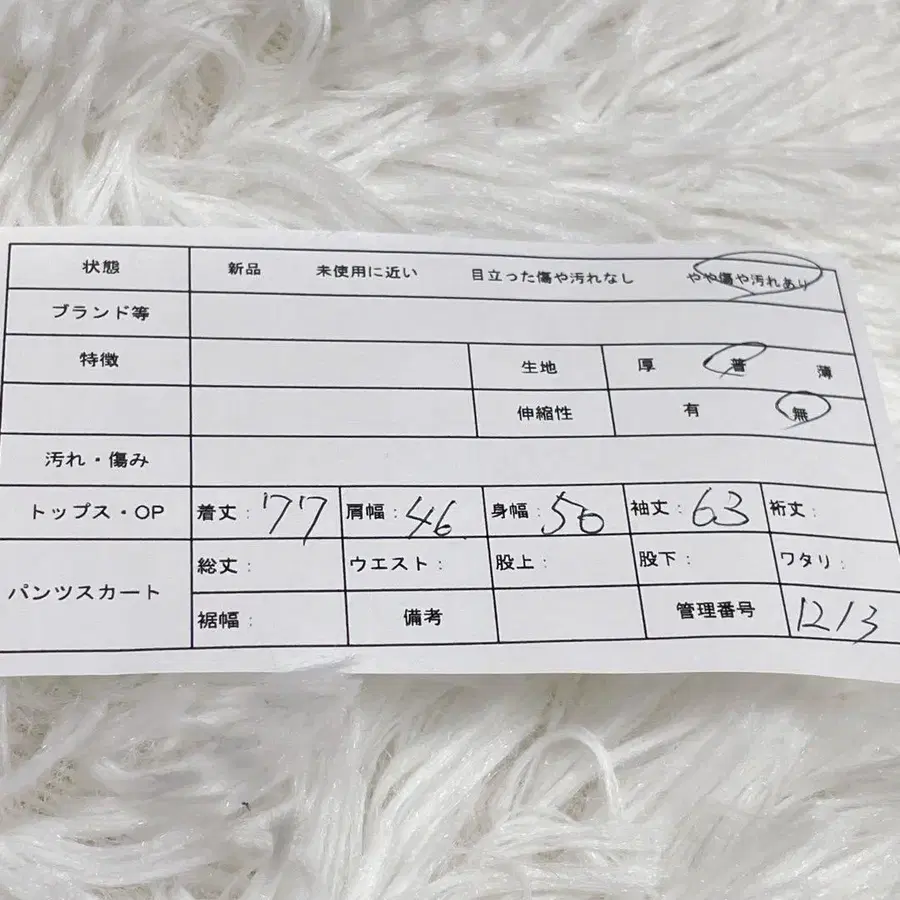 状態 新品 未使用に近い 目立った傷や汚れなし やや傷や汚れあり
ブランド等
特徴 生地 厚 普 薄
伸縮性 有 無
汚れ・傷み
トップス・OP 着丈:77 肩幅:46 身幅:56 袖丈:63 裄丈:
パンツスカート 総丈: ウエスト: 股上: 股下: ワタリ:
裾幅: 備考 管理番号 1213